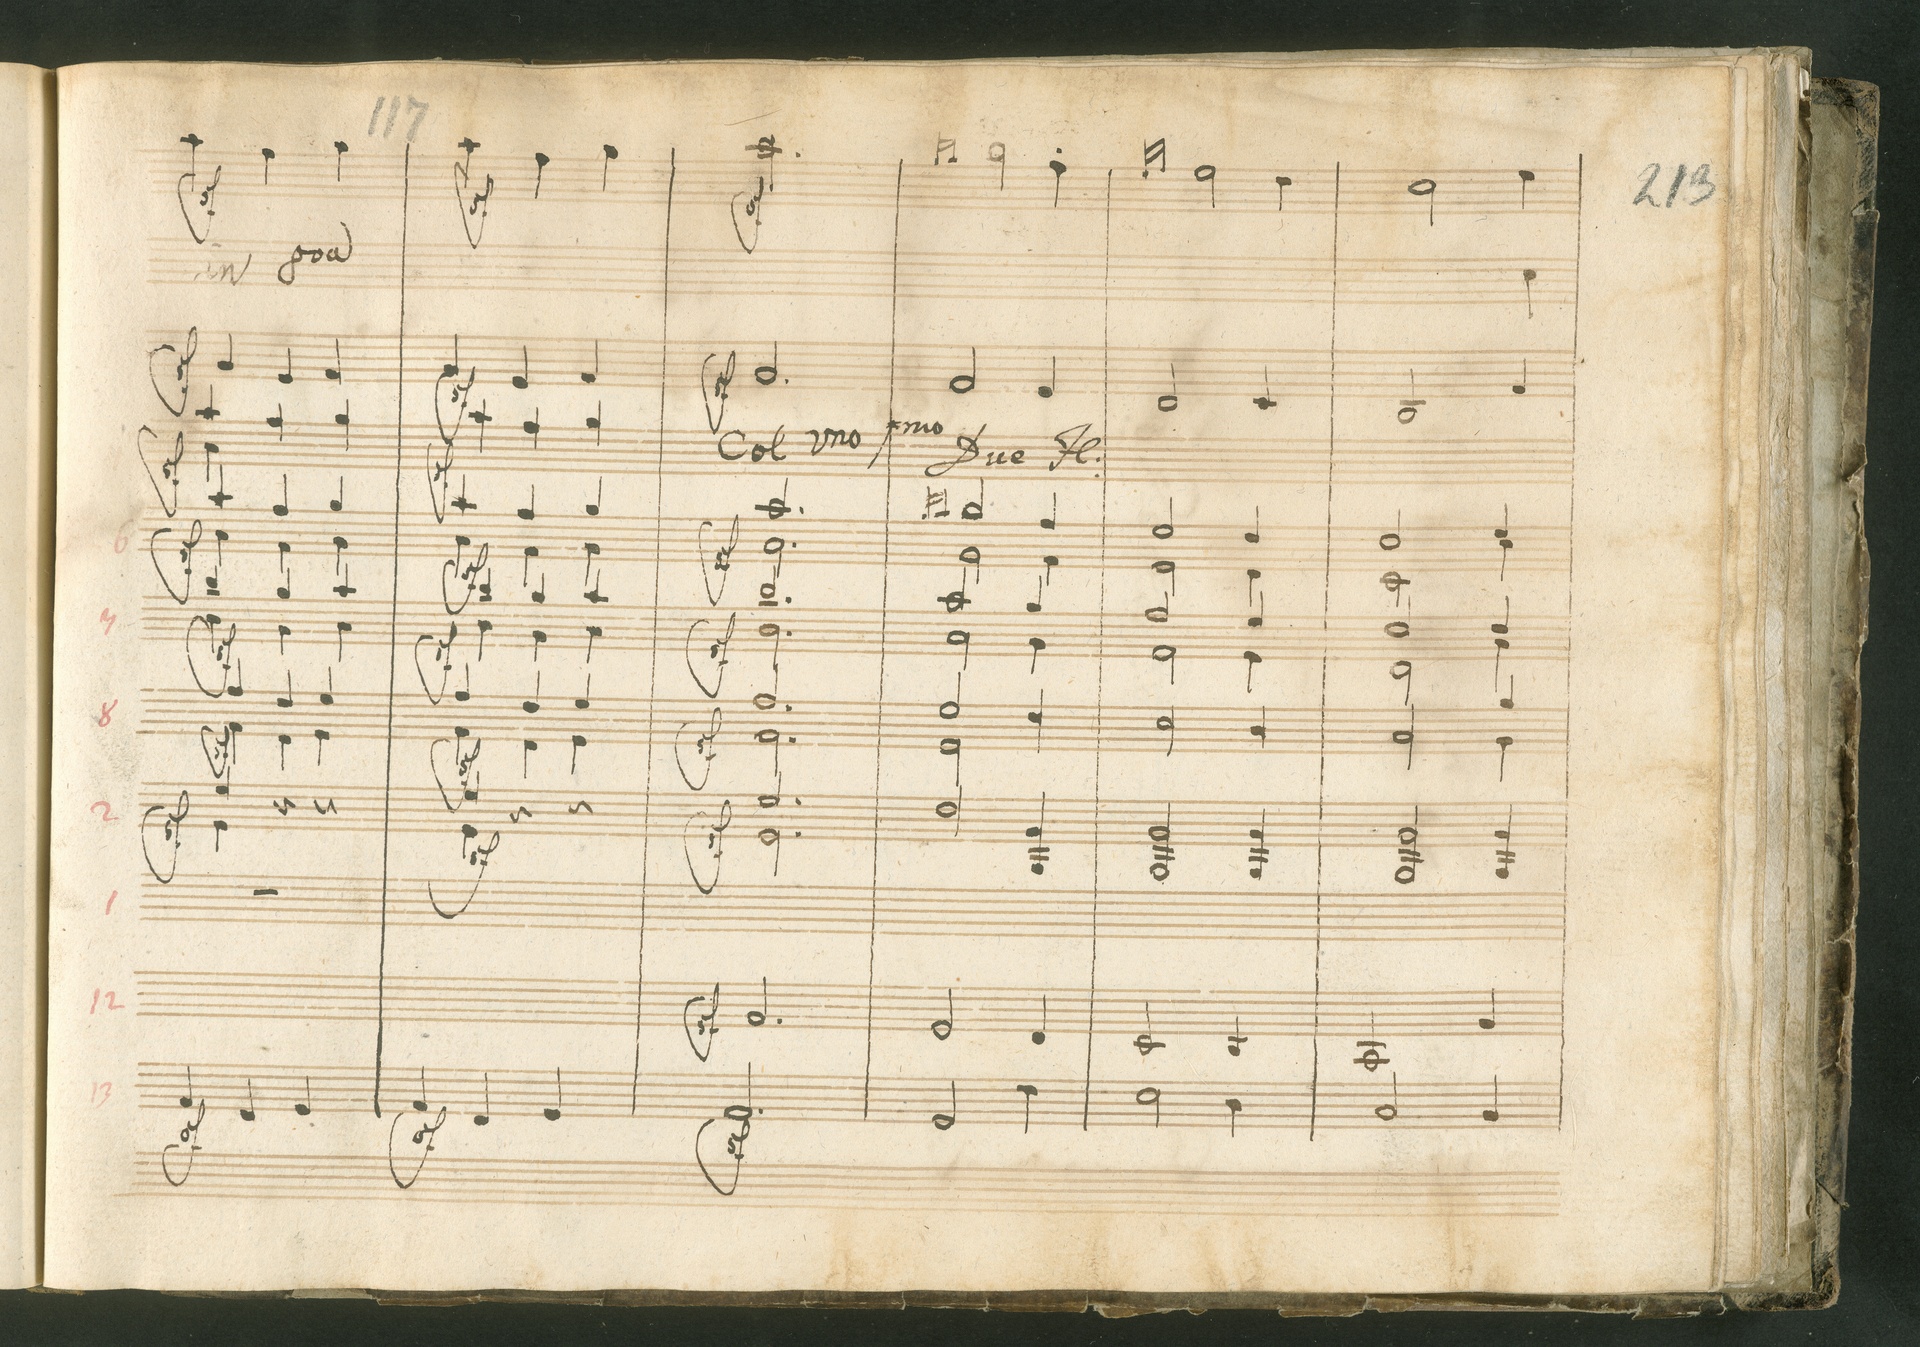 117
213
in 8va
Col vno pmo Due Fl:
6
7
8
2
1
12
13